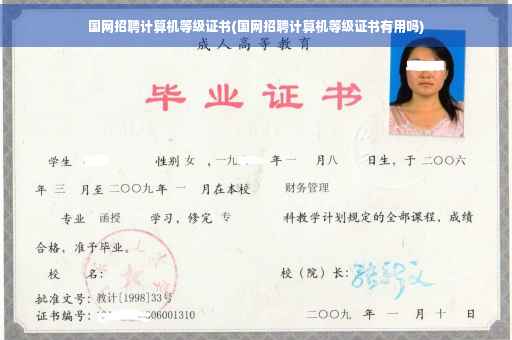 国网招聘计算机等级证书(国网招聘计算机等级证书有用吗)
成人高等教育
毕业证书
学生 性别 女 ，一九 年 一 月八 日生，于 二〇〇六
年 三 月至 二〇〇九 年 一 月在本校 财务管理
专业 函授 学习，修完 专 科教学计划规定的全部课程，成绩
合格，准予毕业。
校 名： 校（院）长：
批准文号：教计[1998]33号
证书编号： 06001310 二〇〇九 年 一 月 十 日